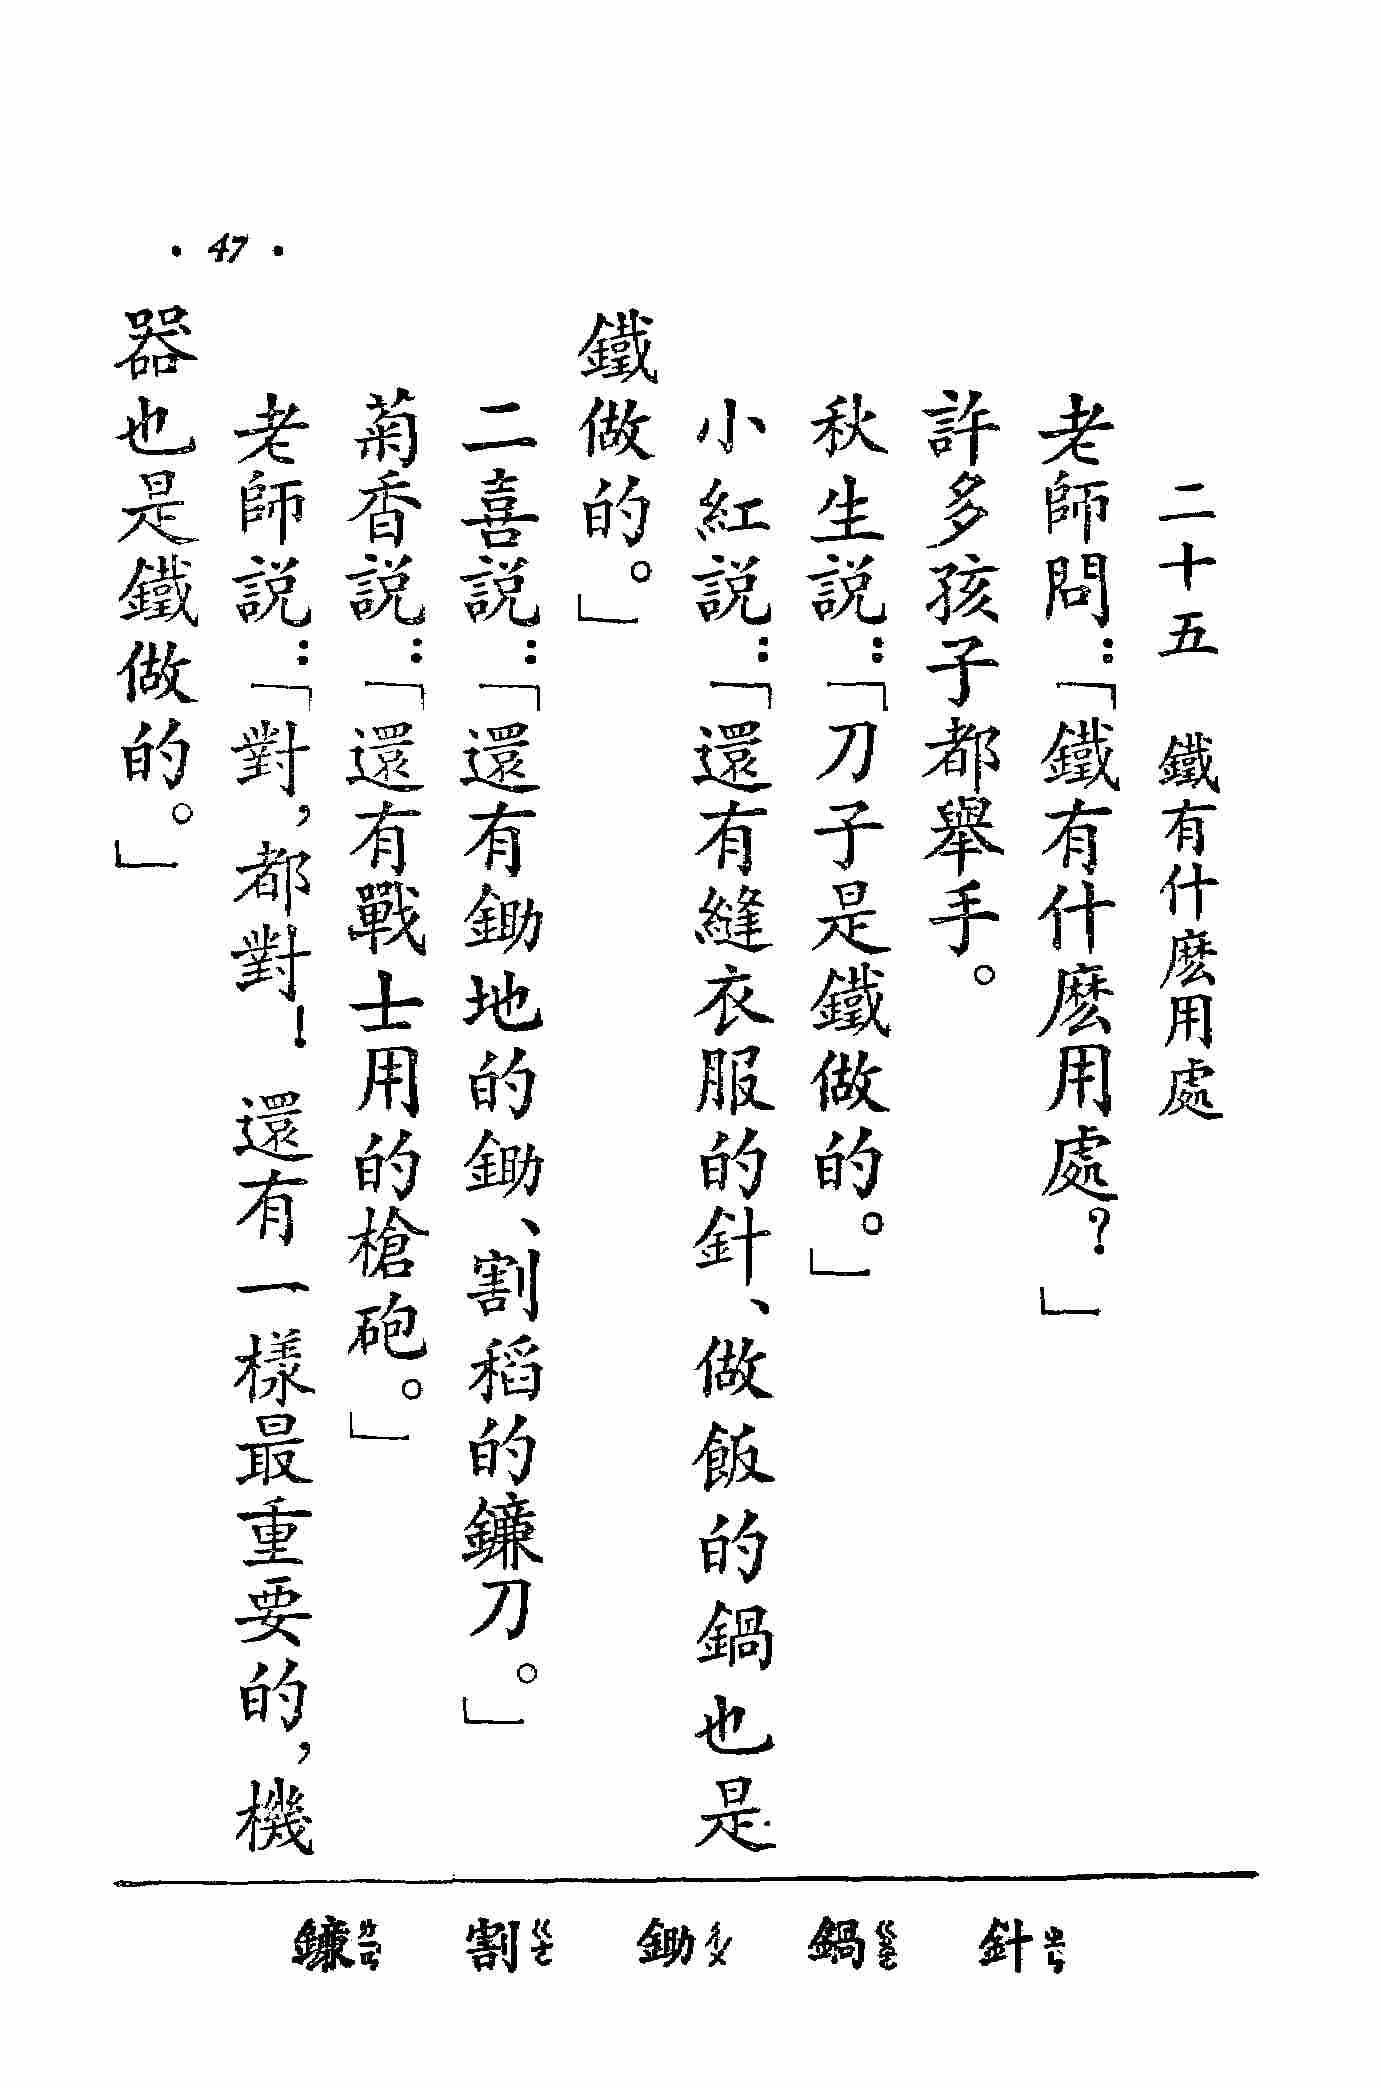 二十五　鐵有什麽用處
老師問：「鐵有什麽用處？」
許多孩子都舉手。
秋生説：「刀子是鐵做的。」
小紅説：「還有縫衣服的針、做飯的鍋也是
鐵做的。」
二喜説：「還有鋤地的鋤、割稻的鐮刀。」
菊香説：「還有戰士用的槍砲。」
老師説：「對，都對！　還有一樣最重要的，機
器也是鐵做的。」
針ㄓㄣ　鍋ㄍㄨㄛ　鋤ㄔㄨ　割ㄍㄜ　鐮ㄌㄧㄢ
• 47 •